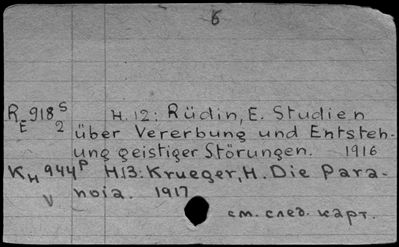 6
R E 918 S 2 H. 12: Rüdin, E. Studien
über Vererbung und Entsteh-
ung geistiger Störungen. 1916
K H 944 P H.13: Krueger, H. Die Para-
V noia. 1917
см. след. карт.